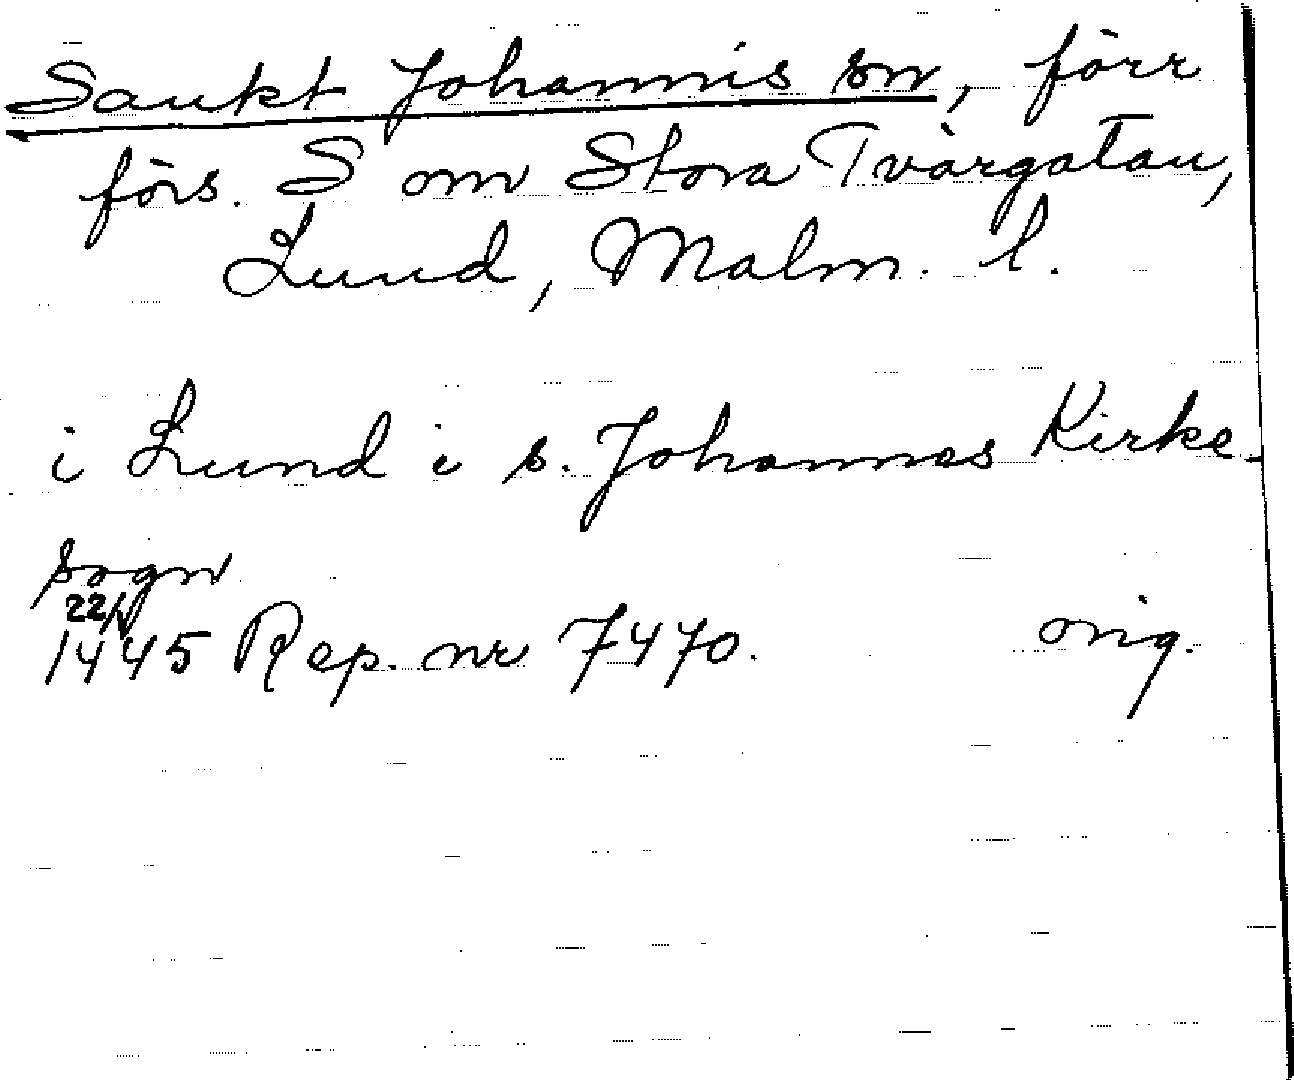 Sankt Johannis sn, förr
förs. S om Stora Tvärgatan,
Lund, Malm. l.
i Lund i s. Johannes Kirke
sogn
22/V
1445 Rep. nr 7470. orig.